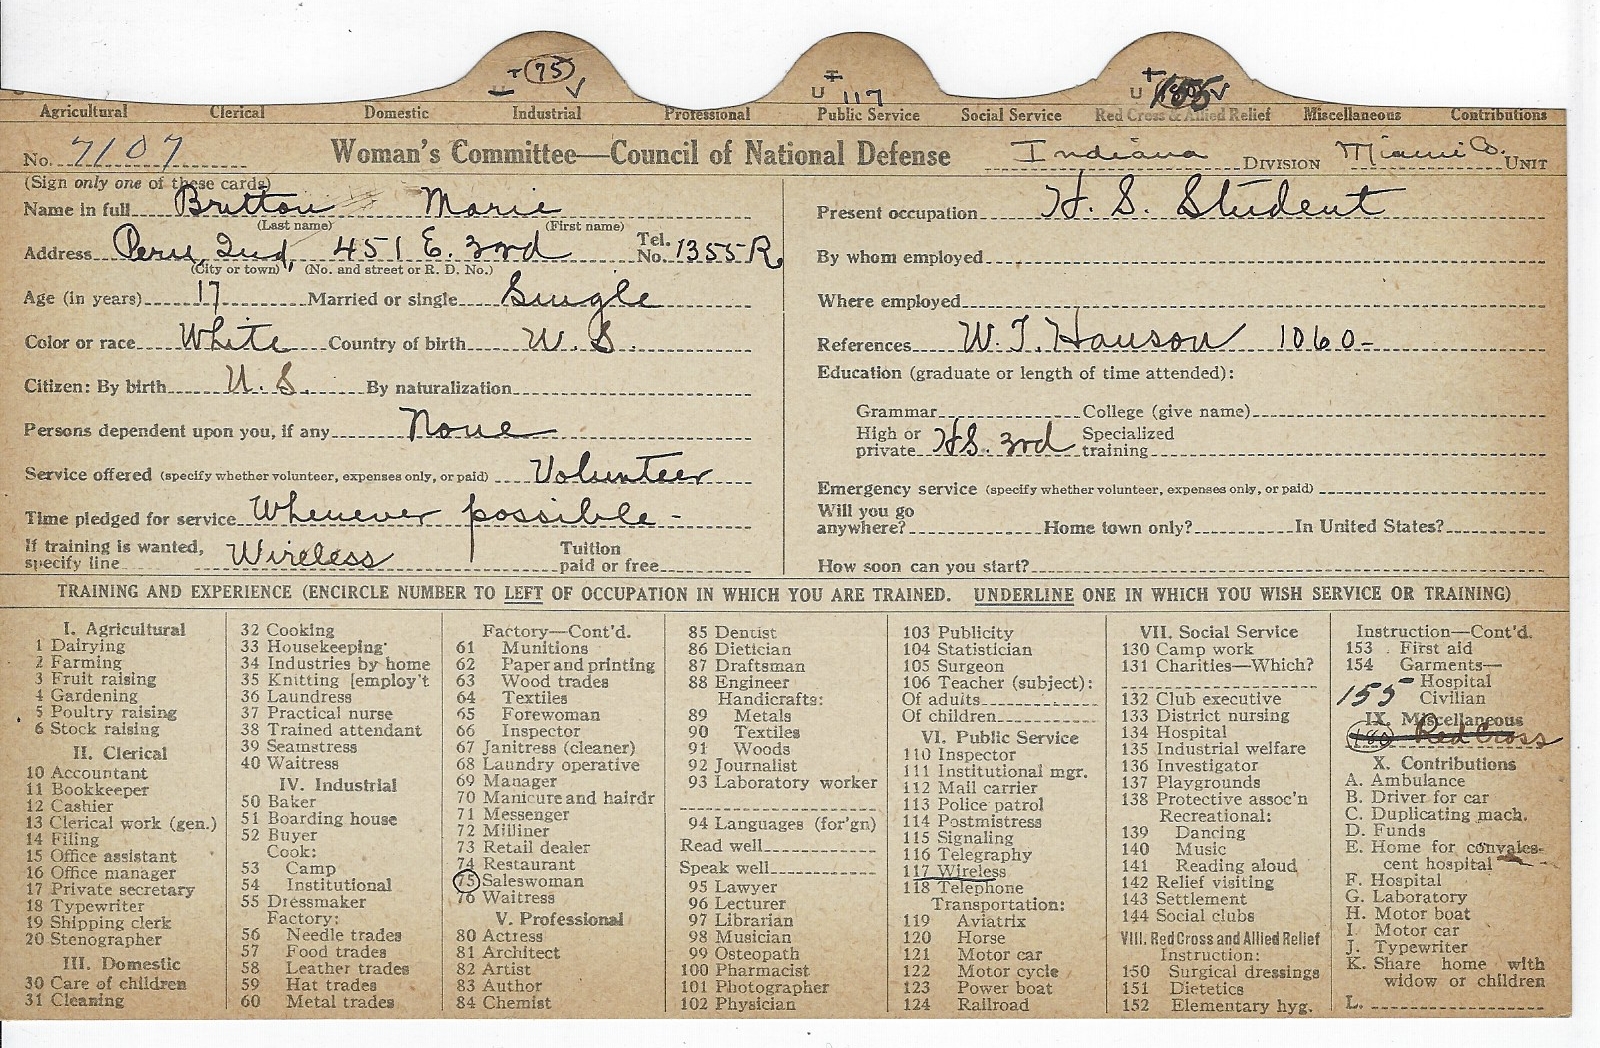 T (75) √
U 117
U 155 √
Agricultural Clerical Domestic Industrial Professional Public Service Social Service Red Cross & Allied Relief Miscellaneous Contributions
No. 7107 Woman's Committee—Council of National Defense Indiana DIVISION Miami Co. UNIT
(Sign only one of these cards)
Name in full Britton Marie
(Last name) (First name)
Address Peru, Ind, 451 E. 3rd Tel. No. 1355 R.
(City or town) (No. and street or R. D. No.)
Age (in years) 17 Married or single Single
Color or race White Country of birth U. S.
Citizen: By birth U. S. By naturalization
Persons dependent upon you, if any None
Service offered (specify whether volunteer, expenses only, or paid) Volunteer
Time pledged for service Whenever possible -
If training is wanted, specify line Wireless Tuition paid or free
Present occupation H. S. Student
By whom employed
Where employed
References W. T. Hanson 1060-
Education (graduate or length of time attended):
Grammar College (give name)
High or private H.S. 3rd Specialized training
Emergency service (specify whether volunteer, expenses only, or paid)
Will you go anywhere? Home town only? In United States?
How soon can you start?
TRAINING AND EXPERIENCE (ENCIRCLE NUMBER TO LEFT OF OCCUPATION IN WHICH YOU ARE TRAINED. UNDERLINE ONE IN WHICH YOU WISH SERVICE OR TRAINING)
I. Agricultural
1 Dairying
2 Farming
3 Fruit raising
4 Gardening
5 Poultry raising
6 Stock raising
II. Clerical
10 Accountant
11 Bookkeeper
12 Cashier
13 Clerical work (gen.)
14 Filing
15 Office assistant
16 Office manager
17 Private secretary
18 Typewriter
19 Shipping clerk
20 Stenographer
III. Domestic
30 Care of children
31 Cleaning
32 Cooking
33 Housekeeping
34 Industries by home
35 Knitting [employ't
36 Laundress
37 Practical nurse
38 Trained attendant
39 Seamstress
40 Waitress
IV. Industrial
50 Baker
51 Boarding house
52 Buyer
Cook:
53 Camp
54 Institutional
55 Dressmaker
Factory:
56 Needle trades
57 Food trades
58 Leather trades
59 Hat trades
60 Metal trades
Factory—Cont'd.
61 Munitions
62 Paper and printing
63 Wood trades
64 Textiles
65 Forewoman
66 Inspector
67 Janitress (cleaner)
68 Laundry operative
69 Manager
70 Manicure and hairdr
71 Messenger
72 Milliner
73 Retail dealer
74 Restaurant
75 Saleswoman
76 Waitress
V. Professional
80 Actress
81 Architect
82 Artist
83 Author
84 Chemist
85 Dentist
86 Dietician
87 Draftsman
88 Engineer
Handicrafts:
89 Metals
90 Textiles
91 Woods
92 Journalist
93 Laboratory worker
94 Languages (for'gn)
Read well
Speak well
95 Lawyer
96 Lecturer
97 Librarian
98 Musician
99 Osteopath
100 Pharmacist
101 Photographer
102 Physician
103 Publicity
104 Statistician
105 Surgeon
106 Teacher (subject):
Of adults
Of children
VI. Public Service
110 Inspector
111 Institutional mgr.
112 Mail carrier
113 Police patrol
114 Postmistress
115 Signaling
116 Telegraphy
117 Wireless
118 Telephone
Transportation:
119 Aviatrix
120 Horse
121 Motor car
122 Motor cycle
123 Power boat
124 Railroad
VII. Social Service
130 Camp work
131 Charities—Which?
132 Club executive
133 District nursing
134 Hospital
135 Industrial welfare
136 Investigator
137 Playgrounds
138 Protective assoc'n
Recreational:
139 Dancing
140 Music
141 Reading aloud
142 Relief visiting
143 Settlement
144 Social clubs
VIII. Red Cross and Allied Relief
Instruction:
150 Surgical dressings
151 Dietetics
152 Elementary hyg.
Instruction—Cont'd.
153 First aid
154 Garments—
Hospital
155 Civilian
IX. Miscellaneous
180 Red Cross
X. Contributions
A. Ambulance
B. Driver for car
C. Duplicating mach.
D. Funds
E. Home for convalescent hospital
F. Hospital
G. Laboratory
H. Motor boat
I. Motor car
J. Typewriter
K. Share home with
widow or children
L.